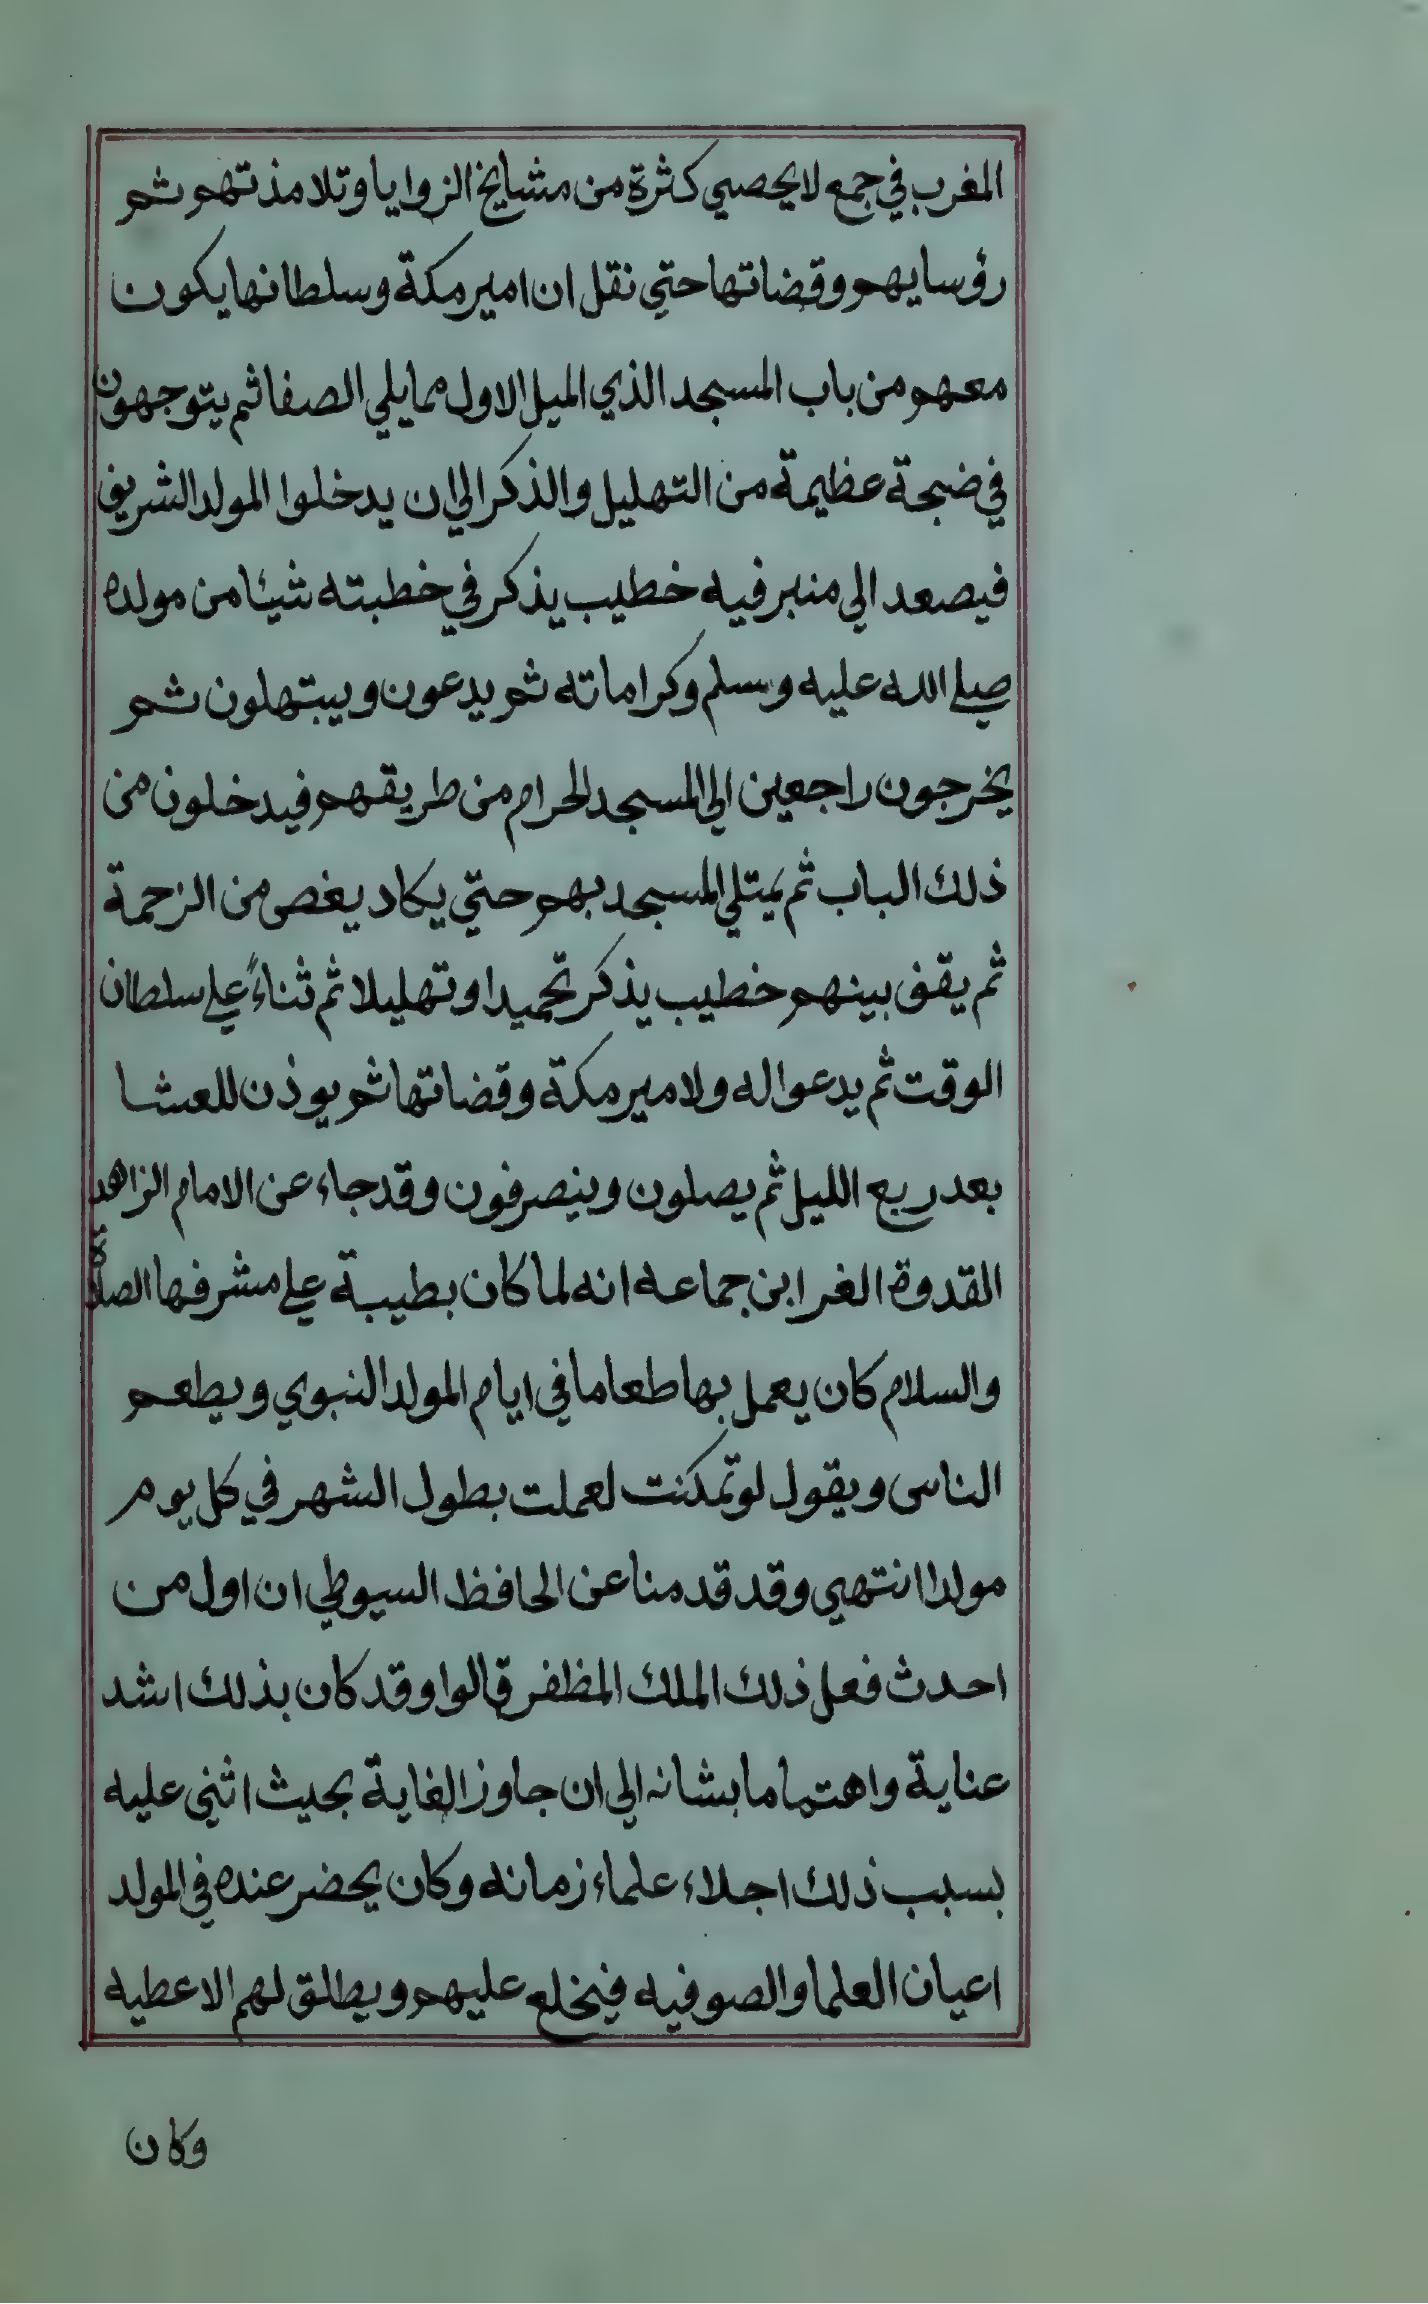 المغرب في جمع لا يحصي كثرة من مشايخ الزوايا وتلامذتهم ثم
رؤسايهم وقضاتها حتي نقل ان امير مكة وسلطانها يكون
معهم من باب المسجد الذي الميل الاول مما يلي الصفا ثم يتوجهون
في ضجة عظيمة من التهليل والذكر الي ان يدخلوا المولد الشريف
فيصعد الي منبر فيه خطيب يذكر في خطبته شيئا من مولده
صلي الله عليه وسلم وكراماته ثم يدعون ويبتهلون ثم
يخرجون راجعين الي المسجد الحرام من طريقهم فيدخلون من
ذلك الباب ثم يمتلي المسجد بهم حتي يكاد يغص من الزحمة
ثم يقف بينهم خطيب يذكر تحميدا وتهليلا ثم ثناءً علي سلطان
الوقت ثم يدعوا له ولامير مكة وقضاتها ثم يوذن للعشا
بعد ربع الليل ثم يصلون وينصرفون وقد جاء عن الامام الزاهد
القدوة الغر ابن جماعه انه لما كان بطيبة علي مشرفها الصلاة
والسلام كان يعمل بها طعاما في ايام المولد النبوي ويطعم
الناس ويقول لو تمكنت لعملت بطول الشهر في كل يوم
مولدا انتهي وقد قدمنا عن الحافظ السيوطي ان اول من
احدث فعل ذلك الملك المظفر قالوا وقد كان بذلك اشد
عناية واهتماما بشانه الي ان جاوز الغاية بحيث اثني عليه
بسبب ذلك اجلاء علماء زمانه وكان يحضر عنده في المولد
اعيان العلما والصوفيه فيخلع عليهم ويطلق لهم الاعطيه
وكان